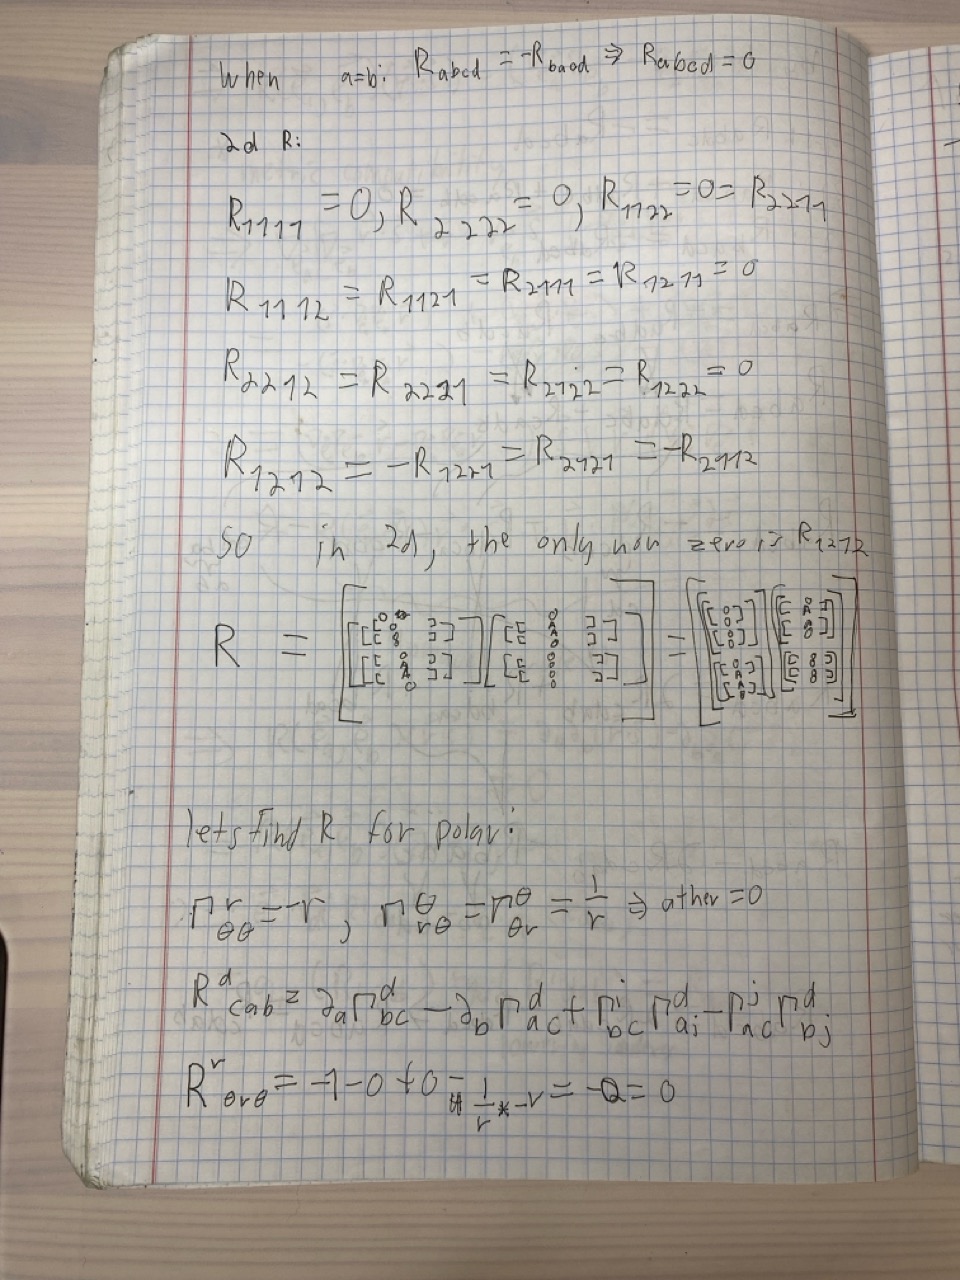 When a=b: R_abcd = -R_bacd ⇒ R_abcd = 0
2d R:
R_1111 = 0, R_2222 = 0, R_1122 = 0 = R_2211
R_1112 = R_1121 = R_2111 = R_1211 = 0
R_2212 = R_2221 = R_2122 = R_1222 = 0
R_1212 = -R_1221 = R_2121 = -R_2112
So in 2d, the only non zero is R_1212
R = =
lets find R for polar:
Γ^r_θθ = -r, Γ^θ_rθ = Γ^θ_θr = 1/r ⇒ other = 0
R^d_cab = ∂_aΓ^d_bc - ∂_bΓ^d_ac + Γ^i_bc Γ^d_ai - Γ^j_ac Γ^d_bj
R^r_θrθ = -1 - 0 + 0 - 1/r * -r = -0 = 0